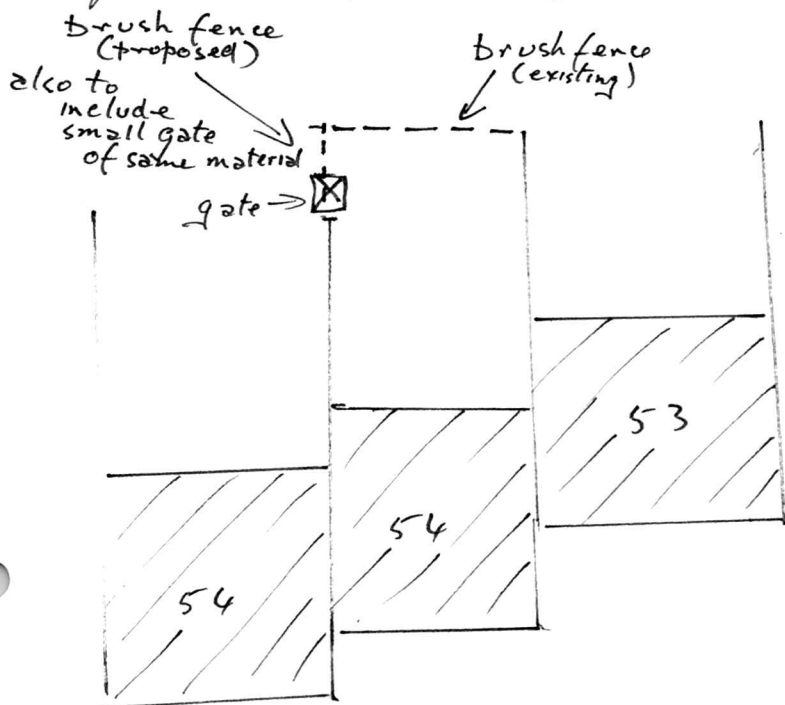 brush fence
(proposed)
also to
include
small gate
of same material
brush fence
(existing)
gate
53
54
54